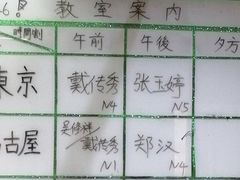 教室案内
時間割 午前 午後 夕方
東京 戴传秀 N4 张玉婷 N5
古屋
戴传秀 N1 郑汉 N4